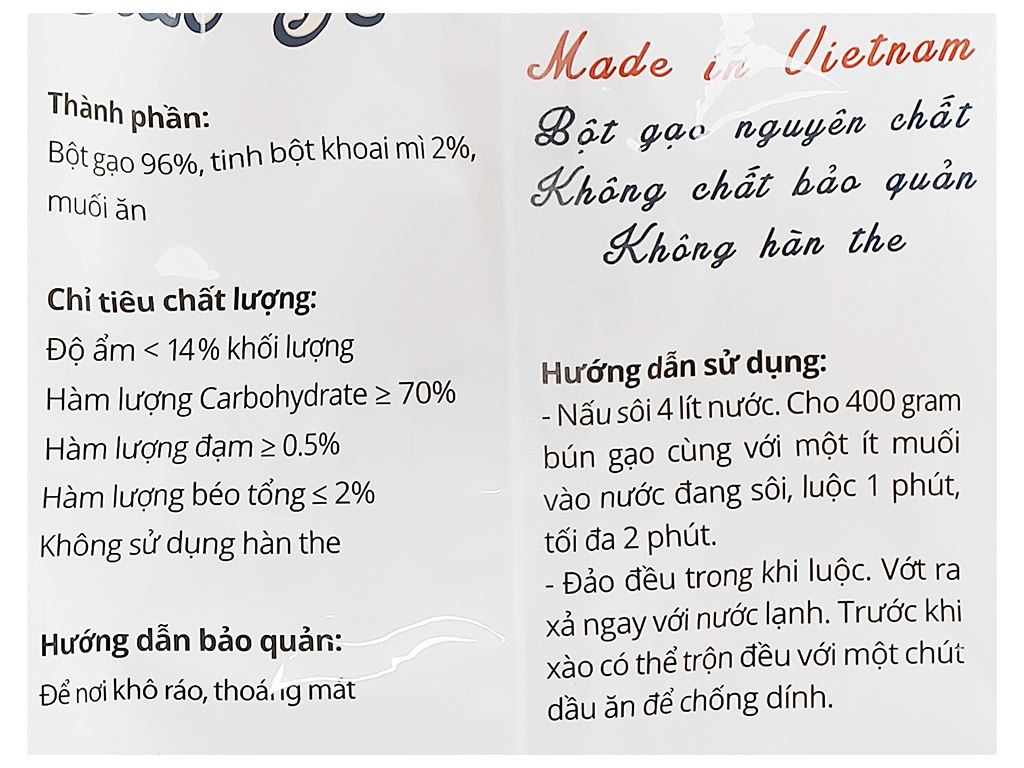 Thành phần:
Bột gạo 96%, tinh bột khoai mì 2%,
muối ăn
Chỉ tiêu chất lượng:
Độ ẩm < 14% khối lượng
Hàm lượng Carbohydrate ≥ 70%
Hàm lượng đạm ≥ 0.5%
Hàm lượng béo tổng ≤ 2%
Không sử dụng hàn the
Hướng dẫn bảo quản:
Để nơi khô ráo, thoáng mát
Made in Vietnam
Bột gạo nguyên chất
Không chất bảo quản
Không hàn the
Hướng dẫn sử dụng:
- Nấu sôi 4 lít nước. Cho 400 gram
bún gạo cùng với một ít muối
vào nước đang sôi, luộc 1 phút,
tối đa 2 phút.
- Đảo đều trong khi luộc. Vớt ra
xả ngay với nước lạnh. Trước khi
xào có thể trộn đều với một chút
dầu ăn để chống dính.